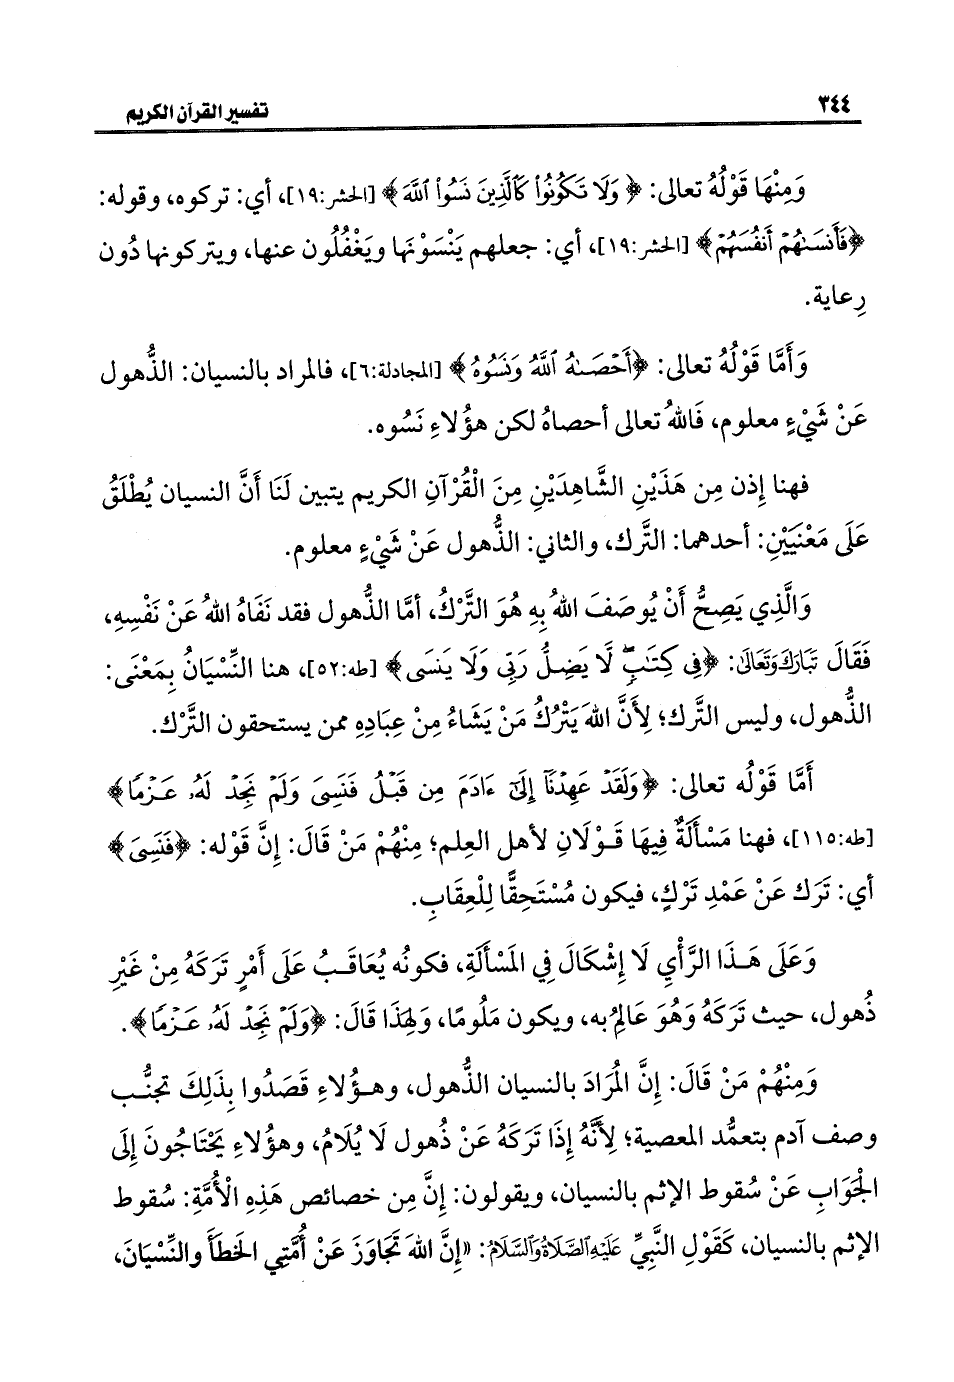 ٣٤٤
تفسير القرآن الكريم
وَمِنْهَا قَوْلُهُ تعالى: ﴿وَلَا تَكُونُوا۟ كَٱلَّذِينَ نَسُوا۟ ٱللَّهَ﴾ [الحشر:١٩]، أي: تركوه، وقوله:
﴿فَأَنسَىٰهُمْ أَنفُسَهُمْ﴾ [الحشر:١٩]، أي: جعلهم يَنْسَوْنَها ويَغْفُلُون عنها، ويتركونها دُون
رِعاية.
وَأَمَّا قَوْلُهُ تعالى: ﴿أَحْصَىٰهُ ٱللَّهُ وَنَسُوهُ﴾ [المجادلة:٦]، فالمراد بالنسيان: الذُّهول
عَنْ شَيْءٍ معلوم، فَاللهُ تعالى أحصاهُ لكن هؤُلاءِ نَسُوه.
فهنا إِذن مِن هَذَيْنِ الشَّاهِدَيْنِ مِنَ الْقُرْآنِ الكريم يتبين لَنَا أَنَّ النسيان يُطْلَقُ
عَلَى مَعْنَيَيْنِ: أحدهما: التَّرك، والثاني: الذُّهول عَنْ شَيْءٍ معلوم.
وَالَّذِي يَصِحُّ أَنْ يُوصَفَ اللهُ بِهِ هُوَ التَّرْكُ، أمَّا الذُّهول فقد نَفَاهُ اللهُ عَنْ نَفْسِهِ،
فَقَالَ تَبَارَكَ وَتَعَالَى: ﴿فِى كِتَٰبٍ ۖ لَّا يَضِلُّ رَبِّى وَلَا يَنسَى﴾ [طه:٥٢]، هنا النِّسْيَانُ بِمَعْنَى:
الذُّهول، وليس التَّرك؛ لِأَنَّ اللهَ يَتْرُكُ مَنْ يَشَاءُ مِنْ عِبَادِهِ ممن يستحقون التَّرْك.
أَمَّا قَوْلُه تعالى: ﴿وَلَقَدْ عَهِدْنَآ إِلَىٰٓ ءَادَمَ مِن قَبْلُ فَنَسِىَ وَلَمْ نَجِدْ لَهُۥ عَزْمًا﴾
[طه:١١٥]، فهنا مَسْأَلَةٌ فِيهَا قَوْلَانِ لأهل العِلم؛ مِنْهُمْ مَنْ قَالَ: إِنَّ قَوْله: ﴿فَنَسِىَ﴾
أي: تَرَك عَنْ عَمْدِ تَرْكٍ، فيكون مُسْتَحِقًّا لِلْعِقَابِ.
وَعَلَى هَذَا الرَّأْيِ لَا إِشْكَالَ فِي المَسْأَلَةِ، فكونُه يُعَاقَبُ عَلَى أَمْرٍ تَرَكَهُ مِنْ غَيْرِ
ذُهول، حيث تَرَكَهُ وَهُوَ عَالِمٌ به، ويكون مَلُومًا، وَلِهَذَا قَالَ: ﴿وَلَمْ نَجِدْ لَهُۥ عَزْمًا﴾.
وَمِنْهُمْ مَنْ قَالَ: إِنَّ المُرَادَ بالنسيان الذُّهول، وهؤُلاءِ قَصَدُوا بِذَلِكَ تجنُّب
وصف آدم بتعمُّد المعصية؛ لِأَنَّهُ إِذَا تَرَكَهُ عَنْ ذُهول لَا يُلَامُ، وهؤُلاءِ يَحْتَاجُونَ إِلَى
الجَوَابِ عَنْ سُقوط الإثم بالنسيان، ويقولون: إِنَّ مِن خصائص هَذِهِ الْأُمَّةِ: سُقوط
الإثم بالنسيان، كَقَوْلِ النَّبِيِّ عَلَيْهِ الصَّلَاةُ وَالسَّلَامُ: «إِنَّ اللهَ تَجَاوَزَ عَنْ أُمَّتِي الخَطَأَ والنِّسْيَانَ،